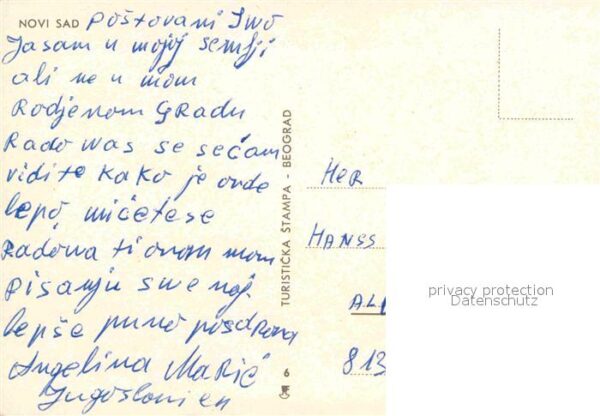 NOVI SAD Poštovani Iwo
Jasam u mojoj semlji
ali ne u mom
Rodjenom GRadu
Rado was se sećam
vidite kako je ovde
lepo, mićetese
Radowa ti ovom mom
pisanju swe naj.
lepše puno posdrowa
Angelina Marić
Jugoslowien
TURISTIČKA ŠTAMPA - BEOGRAD
6
HER
HANSS
AL
813
privacy protection
Datenschutz